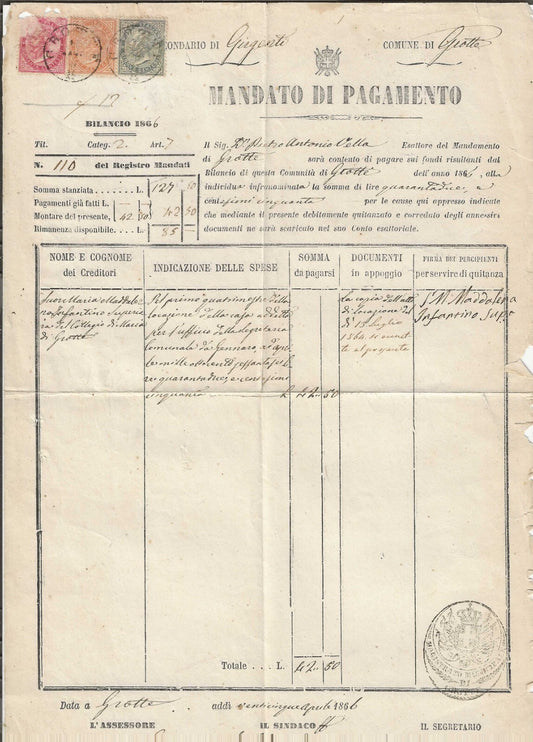 CONDARIO DI Girgenti
COMUNE DI Grotte
MANDATO DI PAGAMENTO
BILANCIO 1866
Tit. Categ. 2. Art. 7
N. 110 del Registro Mandati
Somma stanziata . . . L. 127 50
Pagamenti già fatti L.
Montare del presente, 42 50 42 50
Rimanenza disponibile. . L. 85
Il Sig. Dn Pietro Antonio Vella Esattore del Mandamento
di Grotte sarà contento di pagare sui fondi risultanti dal
Bilancio di questa Comunità di Grotte dell'anno 1866, alla
individua infranominata la somma di lire quarantadue, e
centesimi cinquanta per le cause qui appresso indicate
che mediante il presente debitamente quitanzato e corredato degli annessivi
documenti ne sarà scaricato nel suo Conto esattoriale.
NOME E COGNOME
dei Creditori
INDICAZIONE DELLE SPESE
SOMMA
da pagarsi
DOCUMENTI
in appoggio
FIRMA DEI PERCIPIENTI
per servire di quitanza
Suor Maria Maddale-
na Infantino Superio-
ra del Collegio di Maria
di Grotte
Pel primo quadrimestre della
locazione della casa addetta
per l'ufficio della Segreteria
Comunale da Gennaro ad Aprile
mille ottocento sessantasei
lire quarantadue, e centesimi
cinquanta L. 42 50
La copia dell'atto
di locazione del
dì 15 Luglio
1864
al presente
S. M. Maddalena
Infantino Supra
Totale . . . L. 42 50
Data a Grotte addì venticinque Aprile 1866
L'ASSESSORE
IL SINDACO ff
IL SEGRETARIO